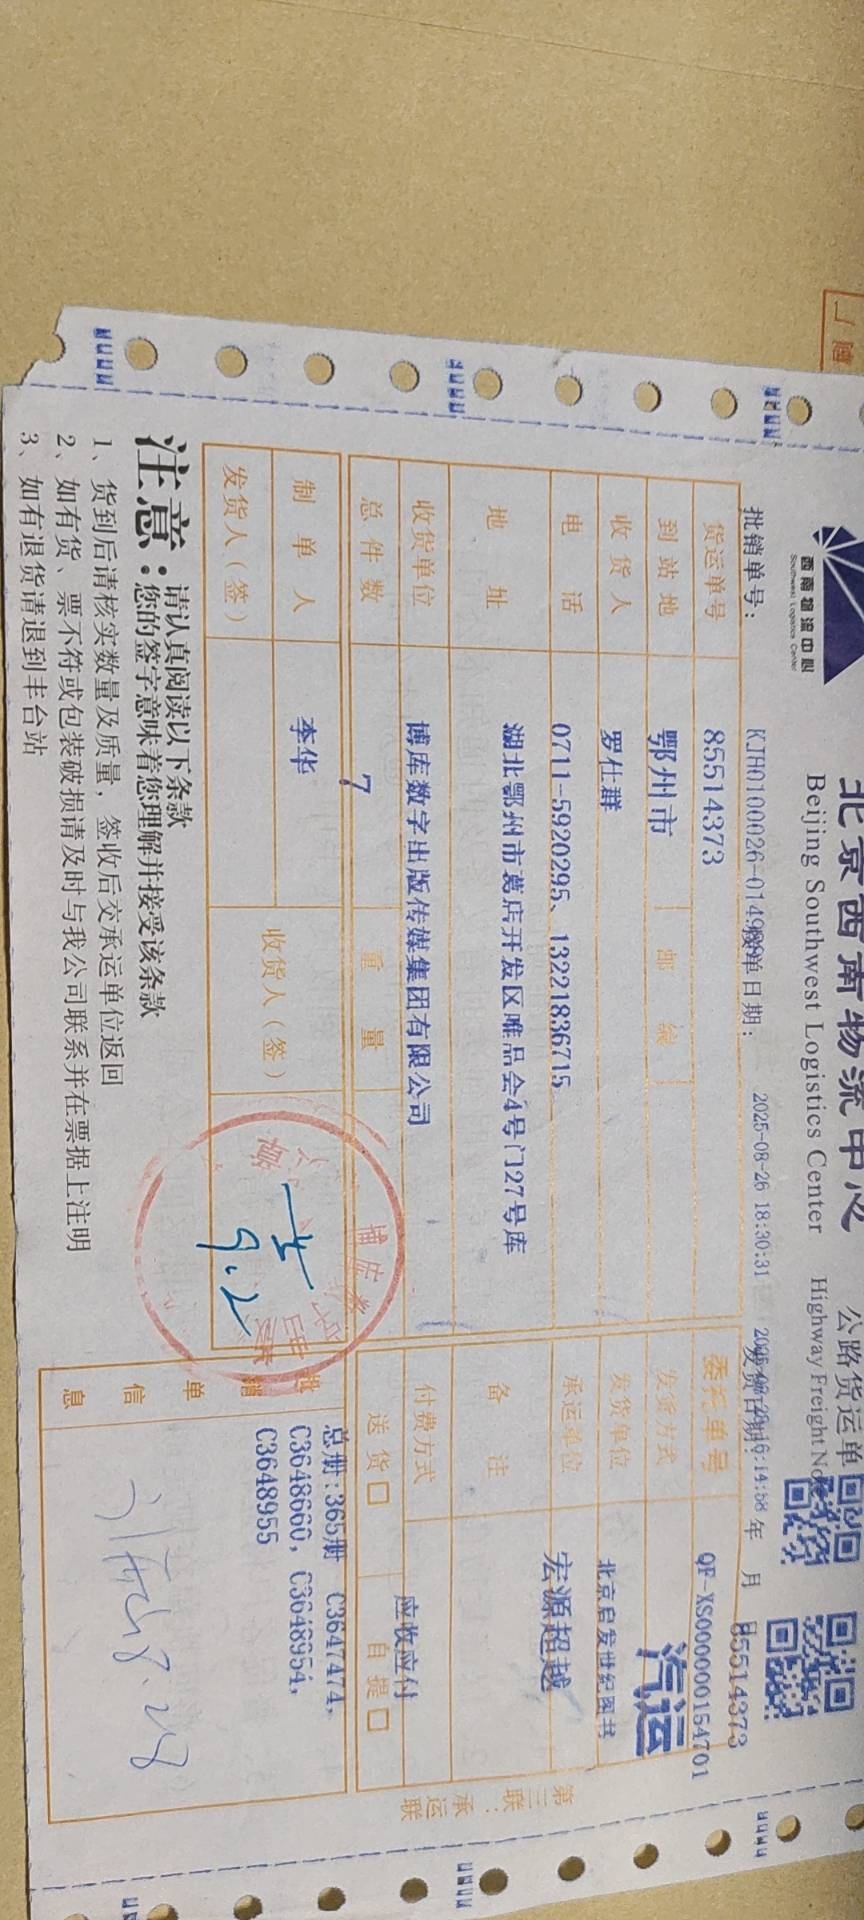 西南物流中心
Southwest Logistics Center
北京西南物流中心 公路货运单
Beijing Southwest Logistics Center Highway Freight Note
85514373
批销单号： KJH0100026-0149 制单日期： 2025-08-26 18:30:31 发货日期： 年 月 日
货运单号 85514373 委托单号 QF-XS000000154701
到站地 鄂州市 邮编 发货方式 汽运
收货人 罗仕群 发货单位 北京启发世纪图书
电话 0711-5920295、13221836715 承运单位 宏源超越
地址 湖北鄂州市葛店开发区唯品会4号门27号库 备注
收货单位 博库数字出版传媒集团有限公司 付费方式 应收应付
总件数 7 重量 送货□ 自提□
制单人 李华 收货人（签） 批销单信息 总册:365册 C3647474,
C3648660, C3648954,
C3648955
发货人（签）
9.2
8.28
注意：请认真阅读以下条款
您的签字意味着您理解并接受该条款
1、货到后请核实数量及质量，签收后交承运单位返回
2、如有货、票不符或包装破损请及时与我公司联系并在票据上注明
3、如有退货请退到丰台站
第三联：承运联